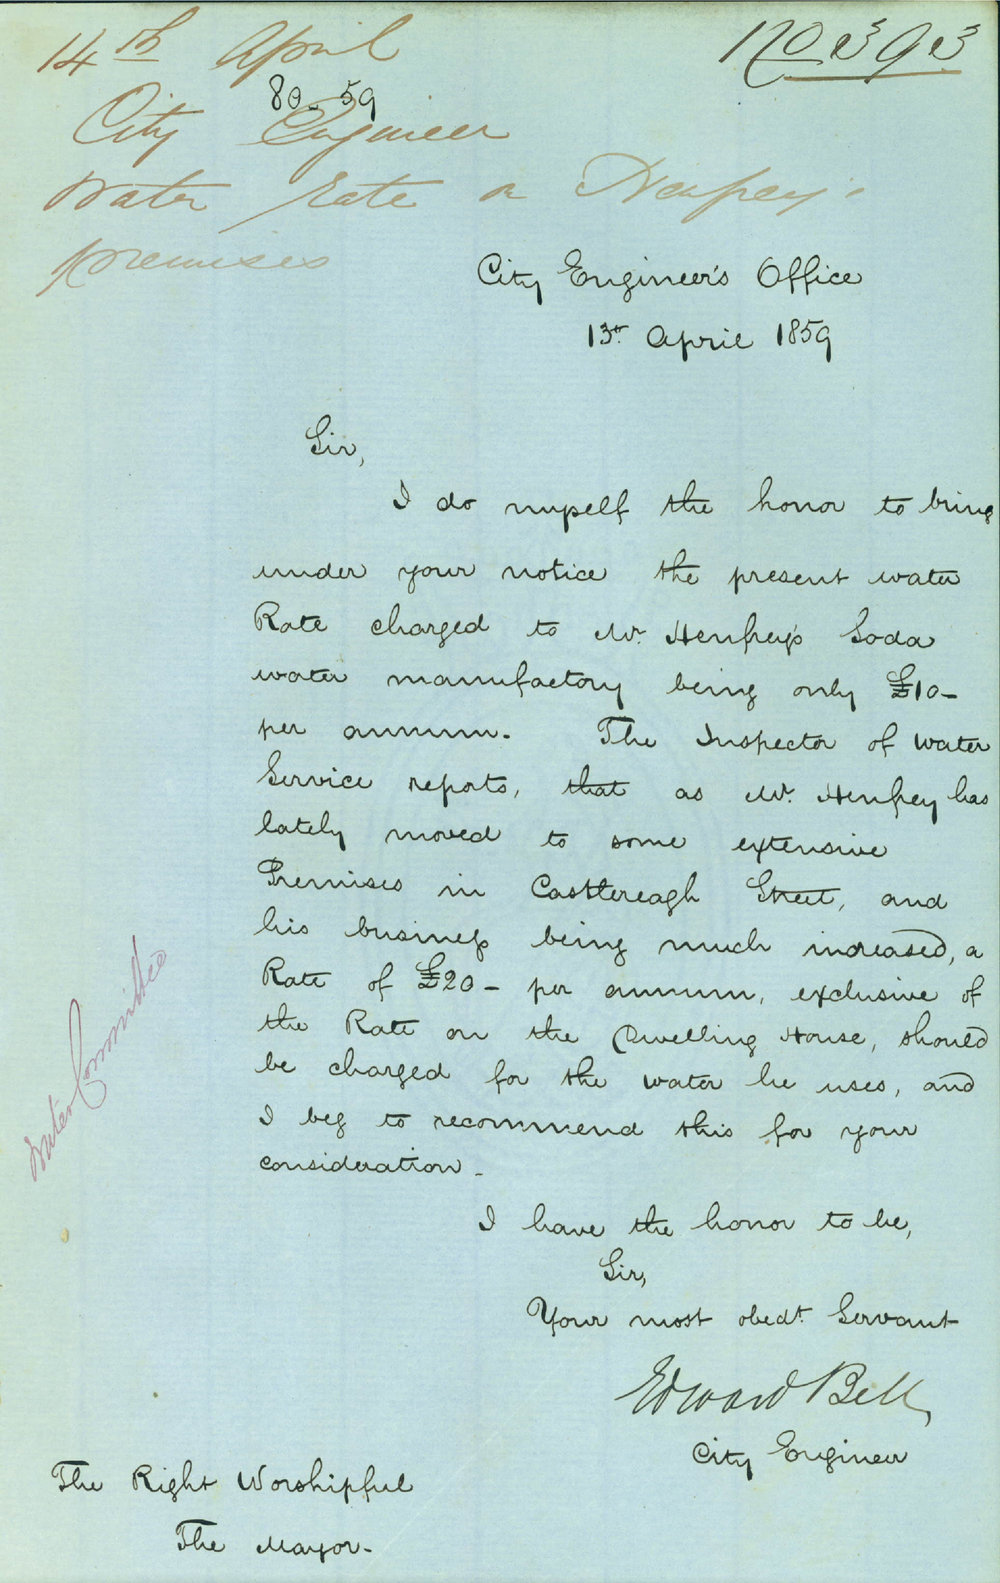 14th April
No 393
80-59
City Engineer
Water Rate on Henfrey's
premises
City Engineer's Office
13th April 1859
Sir,
I do myself the honor to bring
under your notice the present water
Rate charged to Mr. Henfrey's Soda
water manufactory being only £10-
per annum. The Inspector of water
Service reports, that as Mr. Henfrey has
lately moved to some extensive
Premises in Castlereagh Street, and
his business being much increased, a
Rate of £20- per annum, exclusive of
the Rate on the Dwelling House, should
be charged for the water he uses, and
I beg to recommend this for your
consideration -
I have the honor to be,
Sir,
Your most obedt. Servant
Edward Bell,
City Engineer
The Right Worshipful
The Mayor-
Water Committee